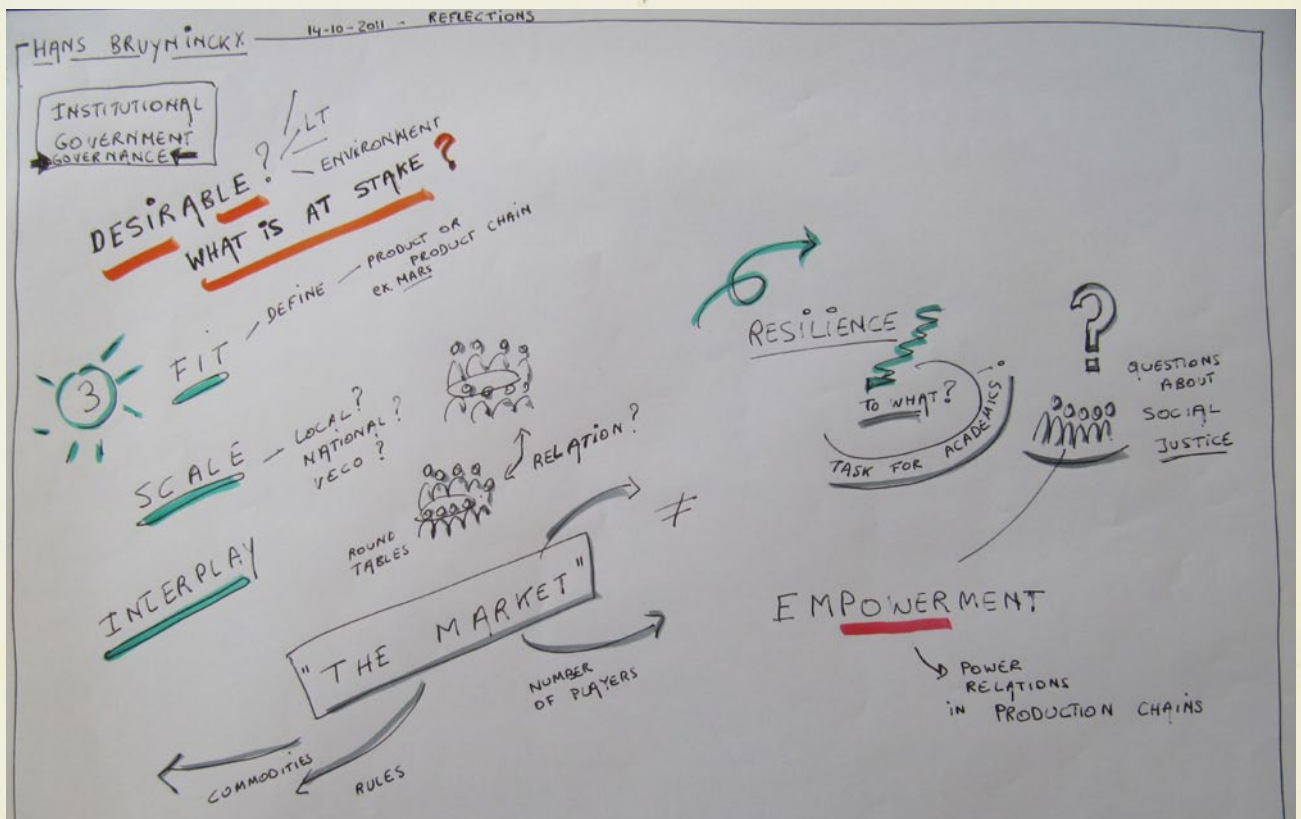 14-10-2011 - REFLECTIONS
HANS BRUYNINCKX
INSTITUTIONAL
GOVERNMENT
GOVERNANCE
DESIRABLE?
LT
ENVIRONMENT
WHAT IS AT STAKE?
3
FIT
DEFINE
PRODUCT OR
PRODUCT CHAIN
ex MARS
SCALE
LOCAL?
NATIONAL?
VECO?
INTERPLAY
RELATION?
ROUND
TABLES
"THE MARKET"
≠
NUMBER
OF PLAYERS
COMMODITIES
RULES
RESILIENCE
TO WHAT?
TASK FOR ACADEMICS!
?
QUESTIONS
ABOUT
SOCIAL
JUSTICE
EMPOWERMENT
POWER
RELATIONS
IN PRODUCTION CHAINS